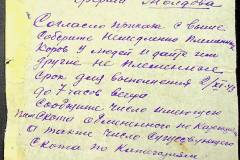 Молдова
Согласно приказа с выше
Соберите Немедленно племенных
Коров у людей и дайте им
другие не племенные
срок для выполнения
до 7 часов вечера
Сообщите число
Скота
А также число существующего
скота по категориям